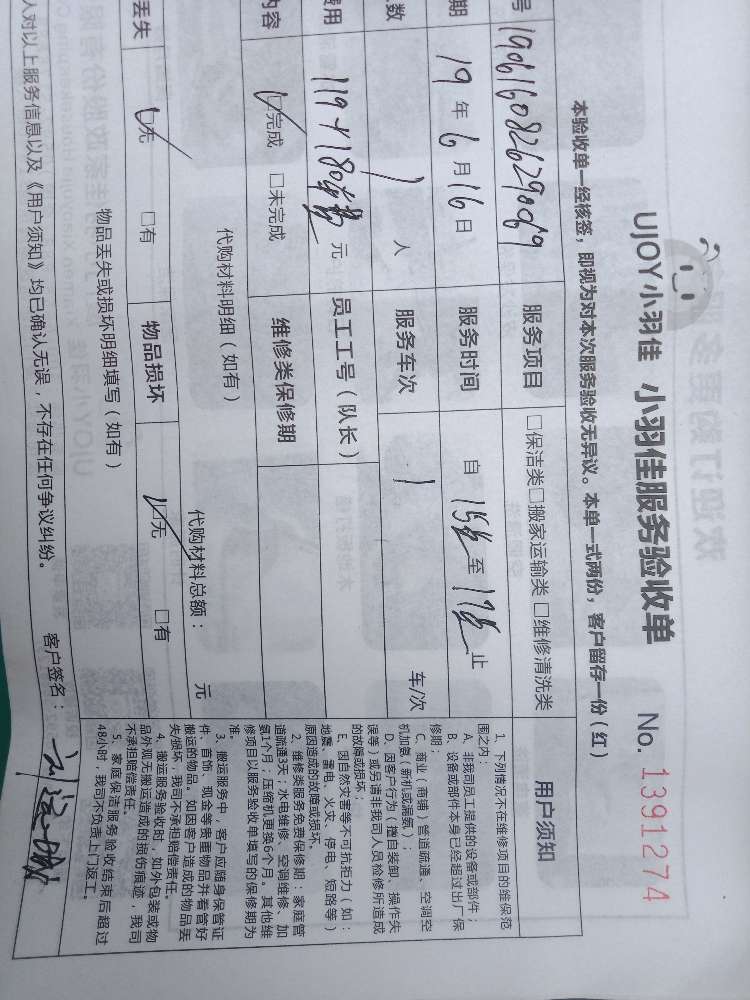 UJOY小羽佳 小羽佳服务验收单 No. 1391274
本验收单一经核签，即视为对本次服务验收无异议。本单一式两份，客户留存一份（红）
号 190616082629069 服务项目 □保洁类□搬家运输类 □维修清洗类
期 19年6月16日 服务时间 自 15点 至 17点 止
数 1 人 服务车次 1 车/次
费用 119+180 元 员工工号（队长）
内容 ☑完成 □未完成 维修类保修期
代购材料明细（如有） 代购材料总额： 元
丢失 ☑无 □有 物品损坏 ☑无 □有
物品丢失或损坏明细填写（如有）
人对以上服务信息以及《用户须知》均已确认无误，不存在任何争议纠纷。 客户签名：
用户须知
1、下列情况不在维修项目的维保范
围之内：
A、非我司员工提供的设备或部件，
B、设备或部件本身已经超过出厂保
修期；
C、商业（商铺）管道疏通、空调空
机加氨（新机或漏氨）；
D、因客户行为（擅自装卸、操作失
误等）或另请非我司人员检修所造成
的故障或损坏；
E、因自然灾害等不可抗拒力（如：
地震、雷电、火灾、停电、短路等）
原因造成的故障或损坏。
2、维修类服务免费保修期：家庭管
道疏通3天；水电维修、空调维修、加
氨1个月；压缩机更换6个月。其他维
修项目以服务验收单填写的保修期为
准。
3、搬运服务中，客户应随身保管证
件、首饰、现金等贵重物品并看管好
搬运的物品。如因客户造成的物品丢
失/损坏，我司不承担赔偿责任。
4、搬运服务验收时，如外包装或物
品外观无搬运造成的损伤痕迹，我司
不承担赔偿责任。
5、家庭保洁服务验收结束后超过
48小时，我司不负责上门返工。